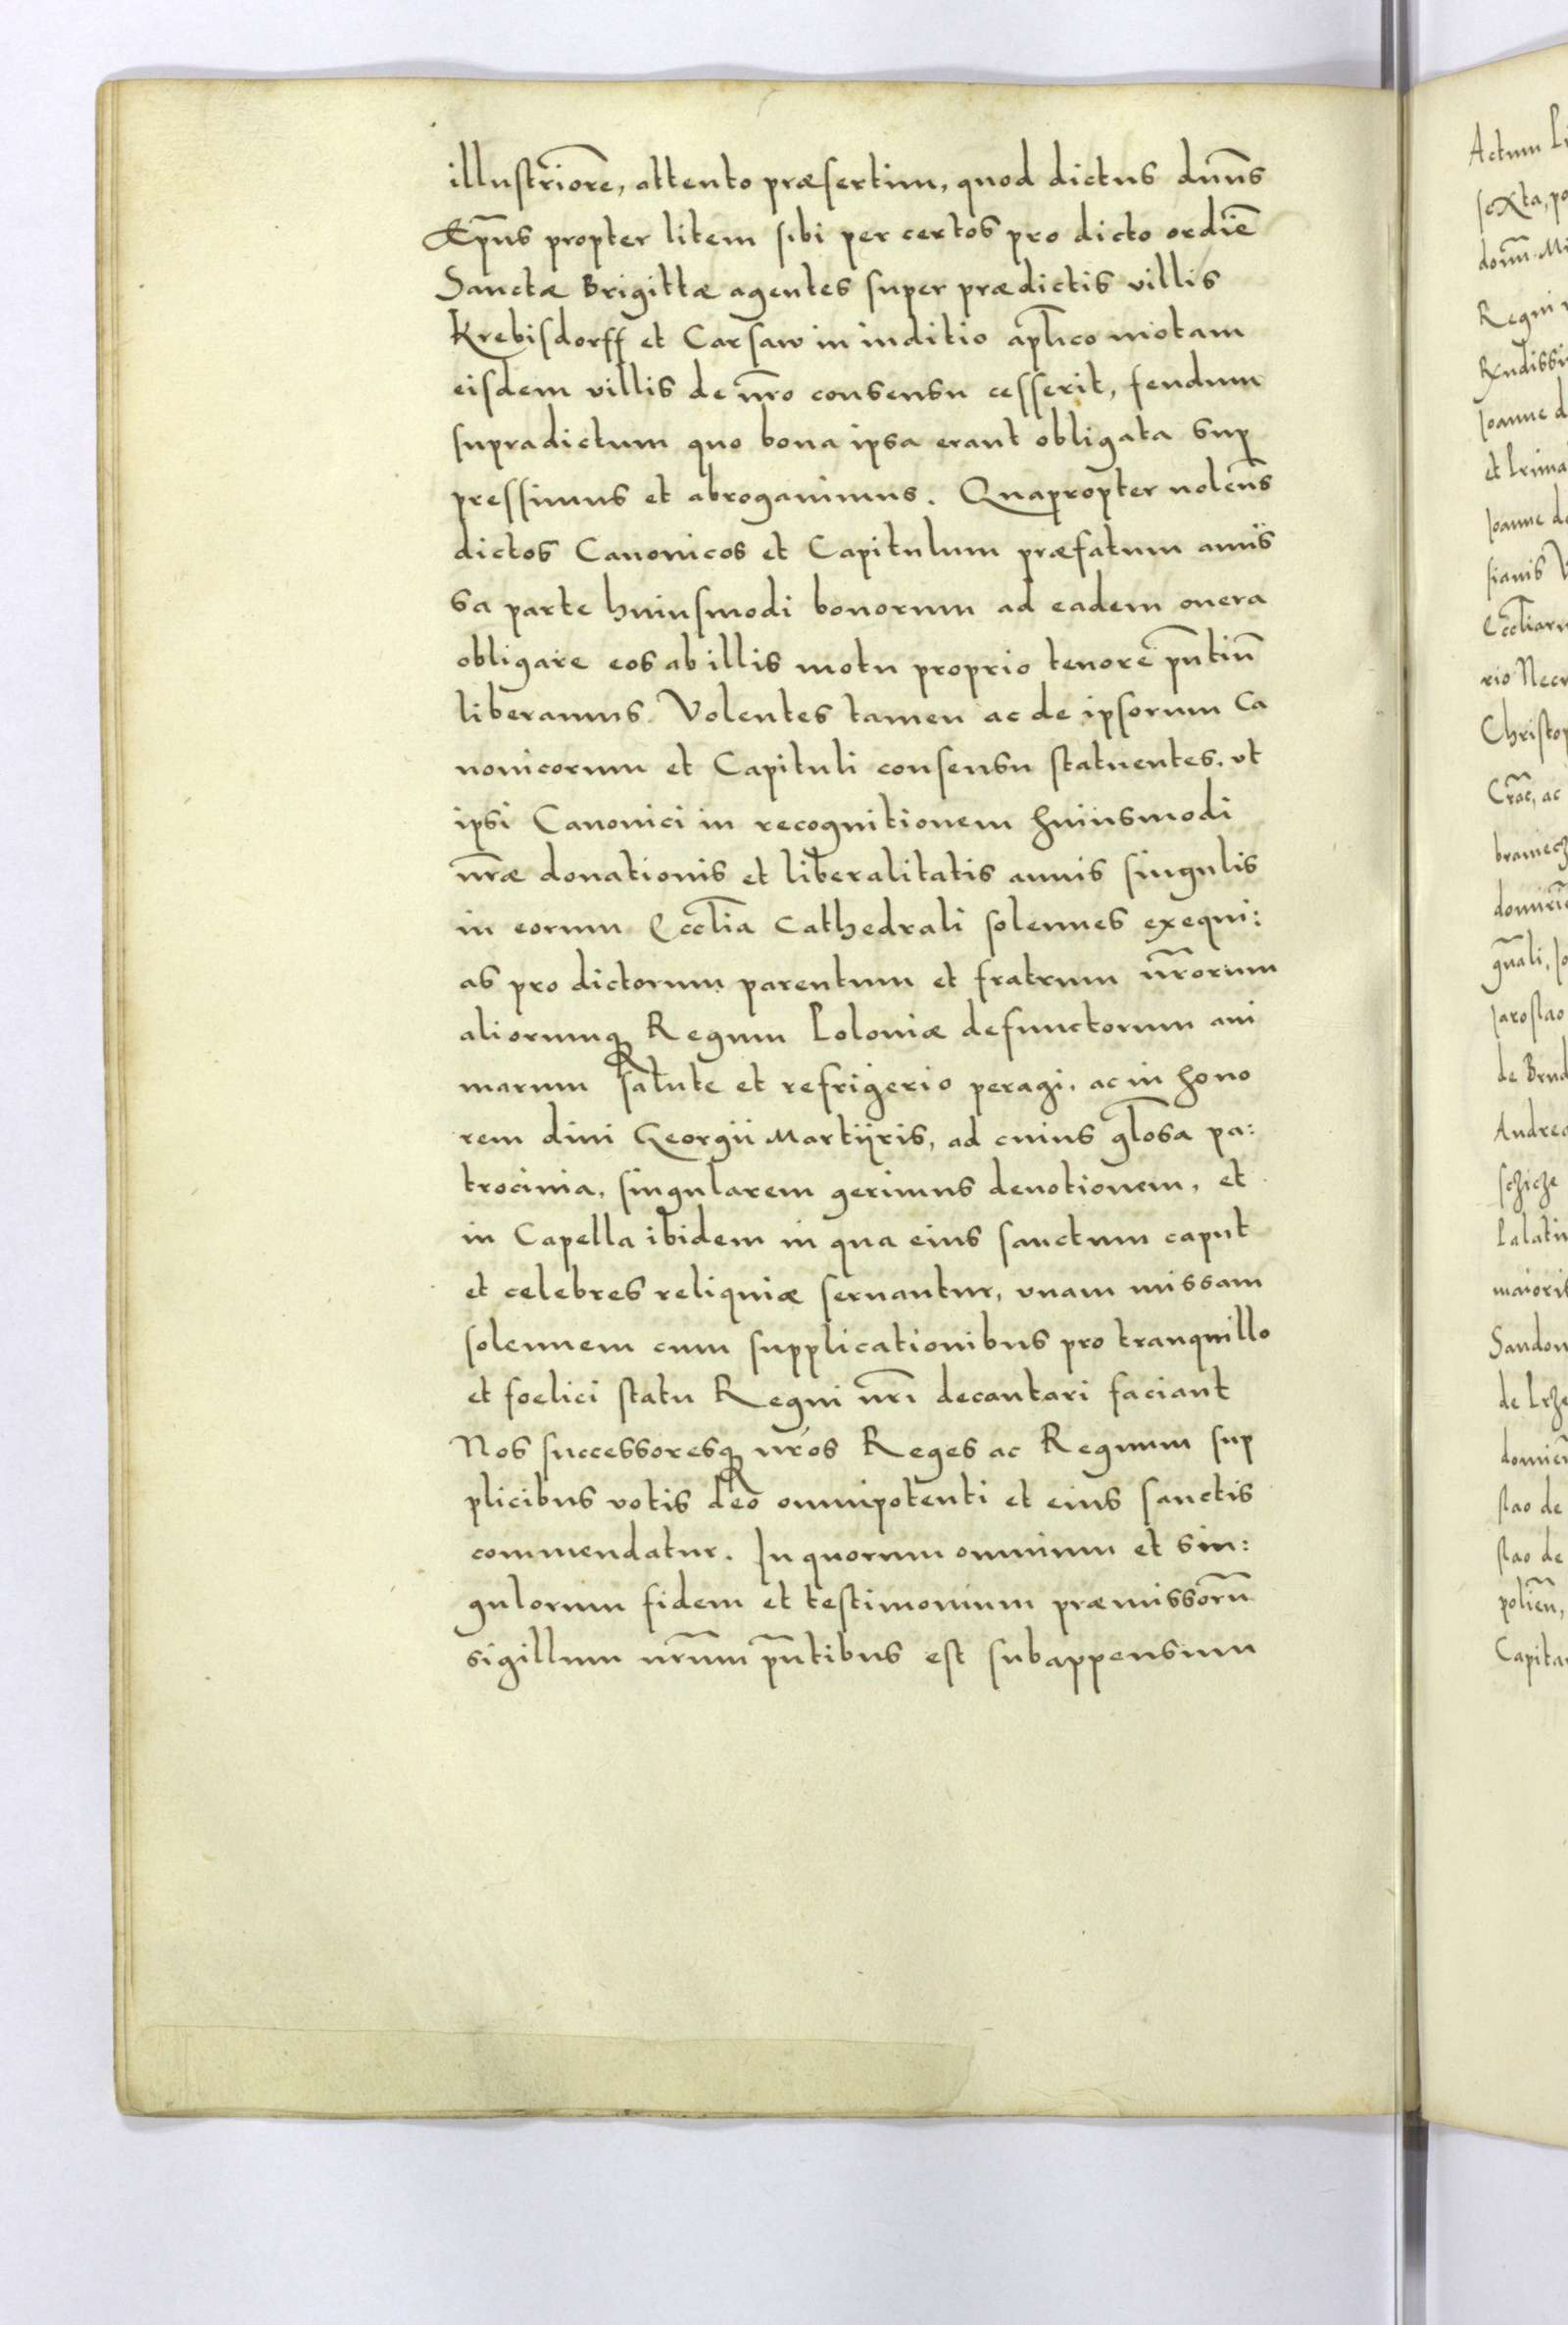 illustriorē, attento præsertim, quod dictus dnūs
Æpūs propter litem sibi per certos pro dicto ordiē
Sanctæ Brigittæ agentes super prædictis villis
Krebisdorff et Carsaw in iuditio aplīco motam
eisdem villis de nr̄o consensu cesserit, feudum
supradictum quo bona ipsa erant obligata sup
pressimus et abrogauimus. Quapropter nolens̄
dictos Canonicos et Capitulum præfatum amis
sa parte huiusmodi bonorum ad eadem onera
obligare eos ab illis motu proprio tenorē pn̄tiū
liberamus. Volentes tamen ac de ipsorum Ca
nonicorum et Capituli consensu statuentes, vt
ipsi Canonici in recognitionem huiusmodi
nr̄æ donationis et liberalitatis annis singulis
in eorum Eccl̄ia Cathedrali solennes exequi:
as pro dictorum parentum et fratrum nr̄orum
aliorumq Regum Poloniæ defunctorum ani
marum salute et refrigerio peragi, ac in hono
rem diui Georgii Martijris, ad cuius gl̄osa pa:
trocinia, singularem gerimus deuotionem, et
in Capella ibidem in qua eius sanctum caput
et celebres reliquiæ seruantur, vnam missam
solennem cum supplicationibus pro tranquillo
et foelici statu Regni nr̄i decantari faciant
Nos successoresq nr̄os Reges ac Regnum sup
plicibus votis deo omnipotenti et eius sanctis
commendatur. In quorum omnium et sin:
gulorum fidem et testimonium præmissorū
sigillum nr̄um pn̄tibus est subappensum
Actum
sexta,
donū
Regni
Rxndissi
Joanne d
et Prima
Joanne de
sianis
Eccl̄iar
rio Necn
Christop
Crac̄, ac
de Brud
Andrea
schicze
Palatin
maioris
Sandom
slao de
slao de
polien̄,
Capita